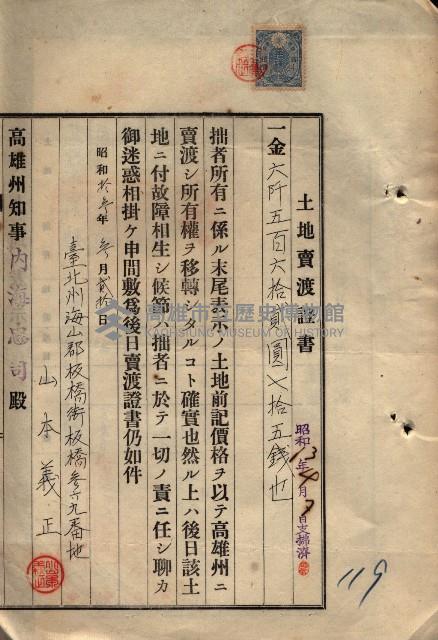 土地賣渡證書
一金六阡五百六拾貳圓七拾五錢也
昭和13年4月9日支拂濟
拙者所有ニ係ル末尾表示ノ土地前記價格ヲ以テ高雄州ニ
賣渡シ所有權ヲ移轉シタルコト確實也然ル上ハ後日該土
地ニ付故障相生シ候節ハ拙者ニ於テ一切ノ責ニ任シ聊カ
御迷惑相掛ケ申間敷爲後日賣渡證書仍如件
昭和拾參年參月貳拾日
臺北州海山郡板橋街板橋參六九番地
山本義正
高雄州知事內海忠司殿
119
高雄市立歷史博物館
KAOHSIUNG MUSEUM OF HISTORY